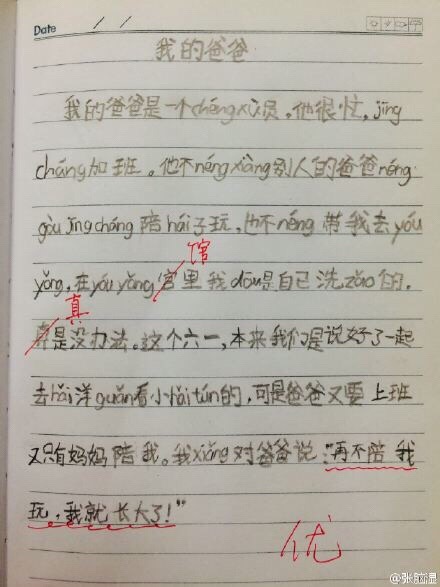 Date / /
我的爸爸
我的爸爸是一个chéngxù员。他很忙,jīng
cháng加班。他不néngxiàng别人的爸爸néng
gòu jīngcháng陪hái子玩,也不néng带我去yóu
馆
yǒng,在yóuyǒng宫里我dōu是自己洗zǎo的。
真
真是没办法。这个六一,本来我们是说好了一起
去hǎi洋guǎn看小hǎitún的,可是爸爸又要上班
又只有妈妈陪我。我xiǎng对爸爸说:“再不陪我
玩,我就长大了!”
优
@张脑湿